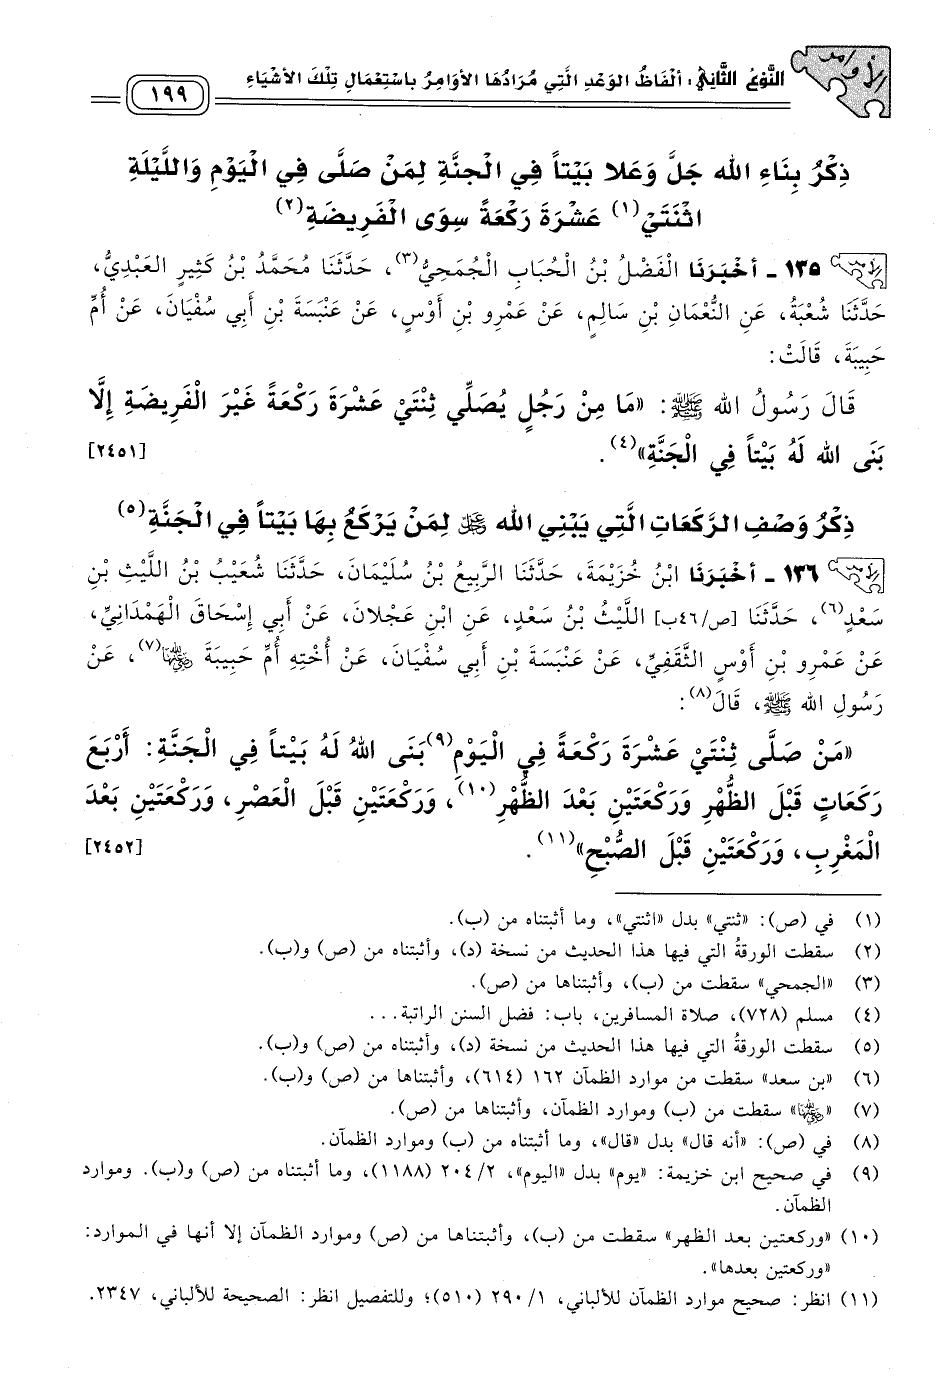 الأوامر
النَّوْعُ الثَّانِي: ألْفَاظُ الوَعْدِ الَّتِي مُرَادُهَا الأَوَامِرُ بِاسْتِعْمَالِ تِلْكَ الأَشْيَاءِ
١٩٩
ذِكْرُ بِنَاءِ الله جَلَّ وَعَلا بَيْتاً فِي الْجَنَّةِ لِمَنْ صَلَّى فِي الْيَوْمِ وَاللَّيْلَةِ
اثْنَتَيْ(١) عَشْرَةَ رَكْعَةً سِوَى الْفَرِيضَةِ(٢)
١٣٥ - أخْبَرَنَا الْفَضْلُ بْنُ الْحُبَابِ الْجُمَحِيُّ(٣)، حَدَّثَنَا مُحَمَّدُ بْنُ كَثِيرٍ العَبْدِيُّ،
حَدَّثَنَا شُعْبَةُ، عَنِ النُّعْمَانِ بْنِ سَالِمٍ، عَنْ عَمْرِو بْنِ أَوْسٍ، عَنْ عَنْبَسَةَ بْنِ أَبِي سُفْيَانَ، عَنْ أُمِّ
حَبِيبَةَ، قَالَتْ:
قَالَ رَسُولُ الله ﷺ: «مَا مِنْ رَجُلٍ يُصَلِّي ثِنْتَيْ عَشْرَةَ رَكْعَةً غَيْرَ الْفَرِيضَةِ إِلَّا
بَنَى الله لَهُ بَيْتاً فِي الْجَنَّةِ»(٤). [٢٤٥١]
ذِكْرُ وَصْفِ الرَّكَعَاتِ الَّتِي يَبْنِي الله ﷻ لِمَنْ يَرْكَعُ بِهَا بَيْتاً فِي الْجَنَّةِ(٥)
١٣٦ - أخْبَرَنَا ابْنُ خُزَيْمَةَ، حَدَّثَنَا الرَّبِيعُ بْنُ سُلَيْمَانَ، حَدَّثَنَا شُعَيْبُ بْنُ اللَّيْثِ بْنِ
سَعْدٍ(٦)، حَدَّثَنَا [ص/٤٦ب] اللَّيْثُ بْنُ سَعْدٍ، عَنِ ابْنِ عَجْلانَ، عَنْ أَبِي إِسْحَاقَ الْهَمْدَانِيِّ،
عَنْ عَمْرِو بْنِ أَوْسٍ الثَّقَفِيِّ، عَنْ عَنْبَسَةَ بْنِ أَبِي سُفْيَانَ، عَنْ أُخْتِهِ أُمِّ حَبِيبَةَ ﵂(٧)، عَنْ
رَسُولِ الله ﷺ، قَالَ(٨):
«مَنْ صَلَّى ثِنْتَيْ عَشْرَةَ رَكْعَةً فِي الْيَوْمِ(٩) بَنَى اللهُ لَهُ بَيْتاً فِي الْجَنَّةِ: أَرْبَعَ
رَكَعَاتٍ قَبْلَ الظُّهْرِ وَرَكْعَتَيْنِ بَعْدَ الظُّهْرِ(١٠)، وَرَكْعَتَيْنِ قَبْلَ الْعَصْرِ، وَرَكْعَتَيْنِ بَعْدَ
الْمَغْرِبِ، وَرَكْعَتَيْنِ قَبْلَ الصُّبْحِ»(١١). [٢٤٥٢]
(١) في (ص): «ثنتي» بدل «اثنتي»، وما أثبتناه من (ب).
(٢) سقطت الورقةُ التي فيها هذا الحديث من نسخة (د)، وأثبتناه من (ص) و(ب).
(٣) «الجمحي» سقطت من (ب)، وأثبتناها من (ص).
(٤) مسلم (٧٢٨)، صلاة المسافرين، باب: فضل السنن الراتبة...
(٥) سقطت الورقةُ التي فيها هذا الحديث من نسخة (د)، وأثبتناه من (ص) و(ب).
(٦) «بن سعد» سقطت من موارد الظمآن ١٦٢ (٦١٤)، وأثبتناها من (ص) و(ب).
(٧) «﵂» سقطت من (ب) وموارد الظمآن، وأثبتناها من (ص).
(٨) في (ص): «أنه قال» بدل «قال»، وما أثبتناه من (ب) وموارد الظمآن.
(٩) في صحيح ابن خزيمة: «يوم» بدل «اليوم»، ٢/ ٢٠٤ (١١٨٨)، وما أثبتناه من (ص) و(ب). وموارد
الظمآن.
(١٠) «وركعتين بعد الظهر» سقطت من (ب)، وأثبتناها من (ص) وموارد الظمآن إلا أنها في الموارد:
«وركعتين بعدها».
(١١) انظر: صحيح موارد الظمآن للألباني، ١/ ٢٩٠ (٥١٠)؛ وللتفصيل انظر: الصحيحة للألباني، ٢٣٤٧.